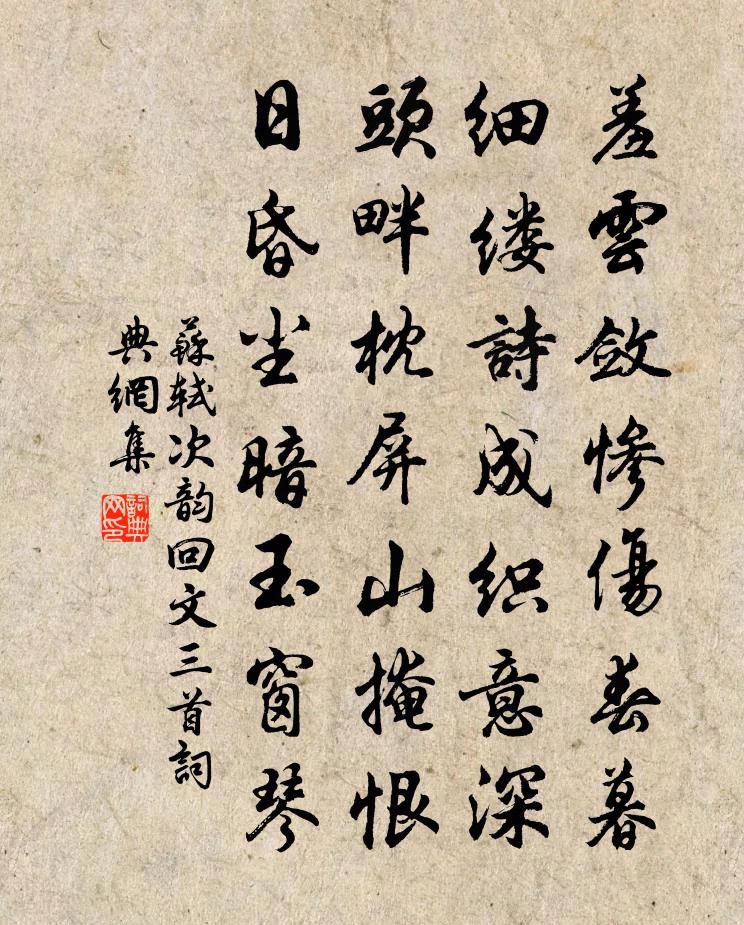 羞雲斂慘傷春暮
細缕詩成织意深
頭畔枕屏山掩恨
日昏尘暗玉窗琴
蘇轼次韵回文三首詞
典網集
詞典网印